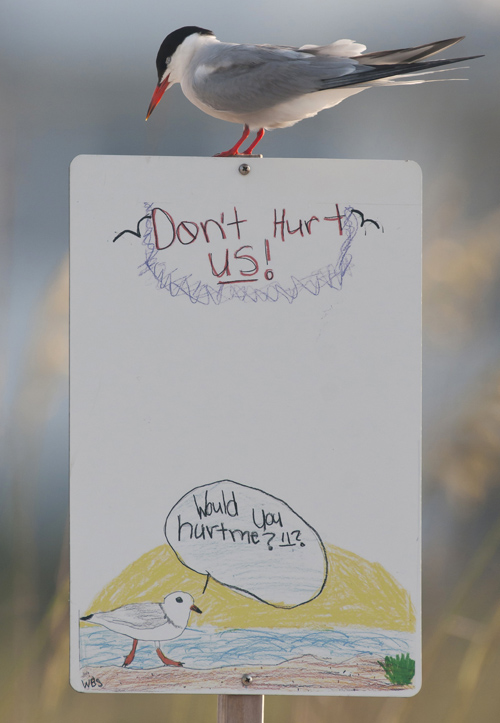 Don't Hurt
us!
Would you
hurt me?!!?
WBS